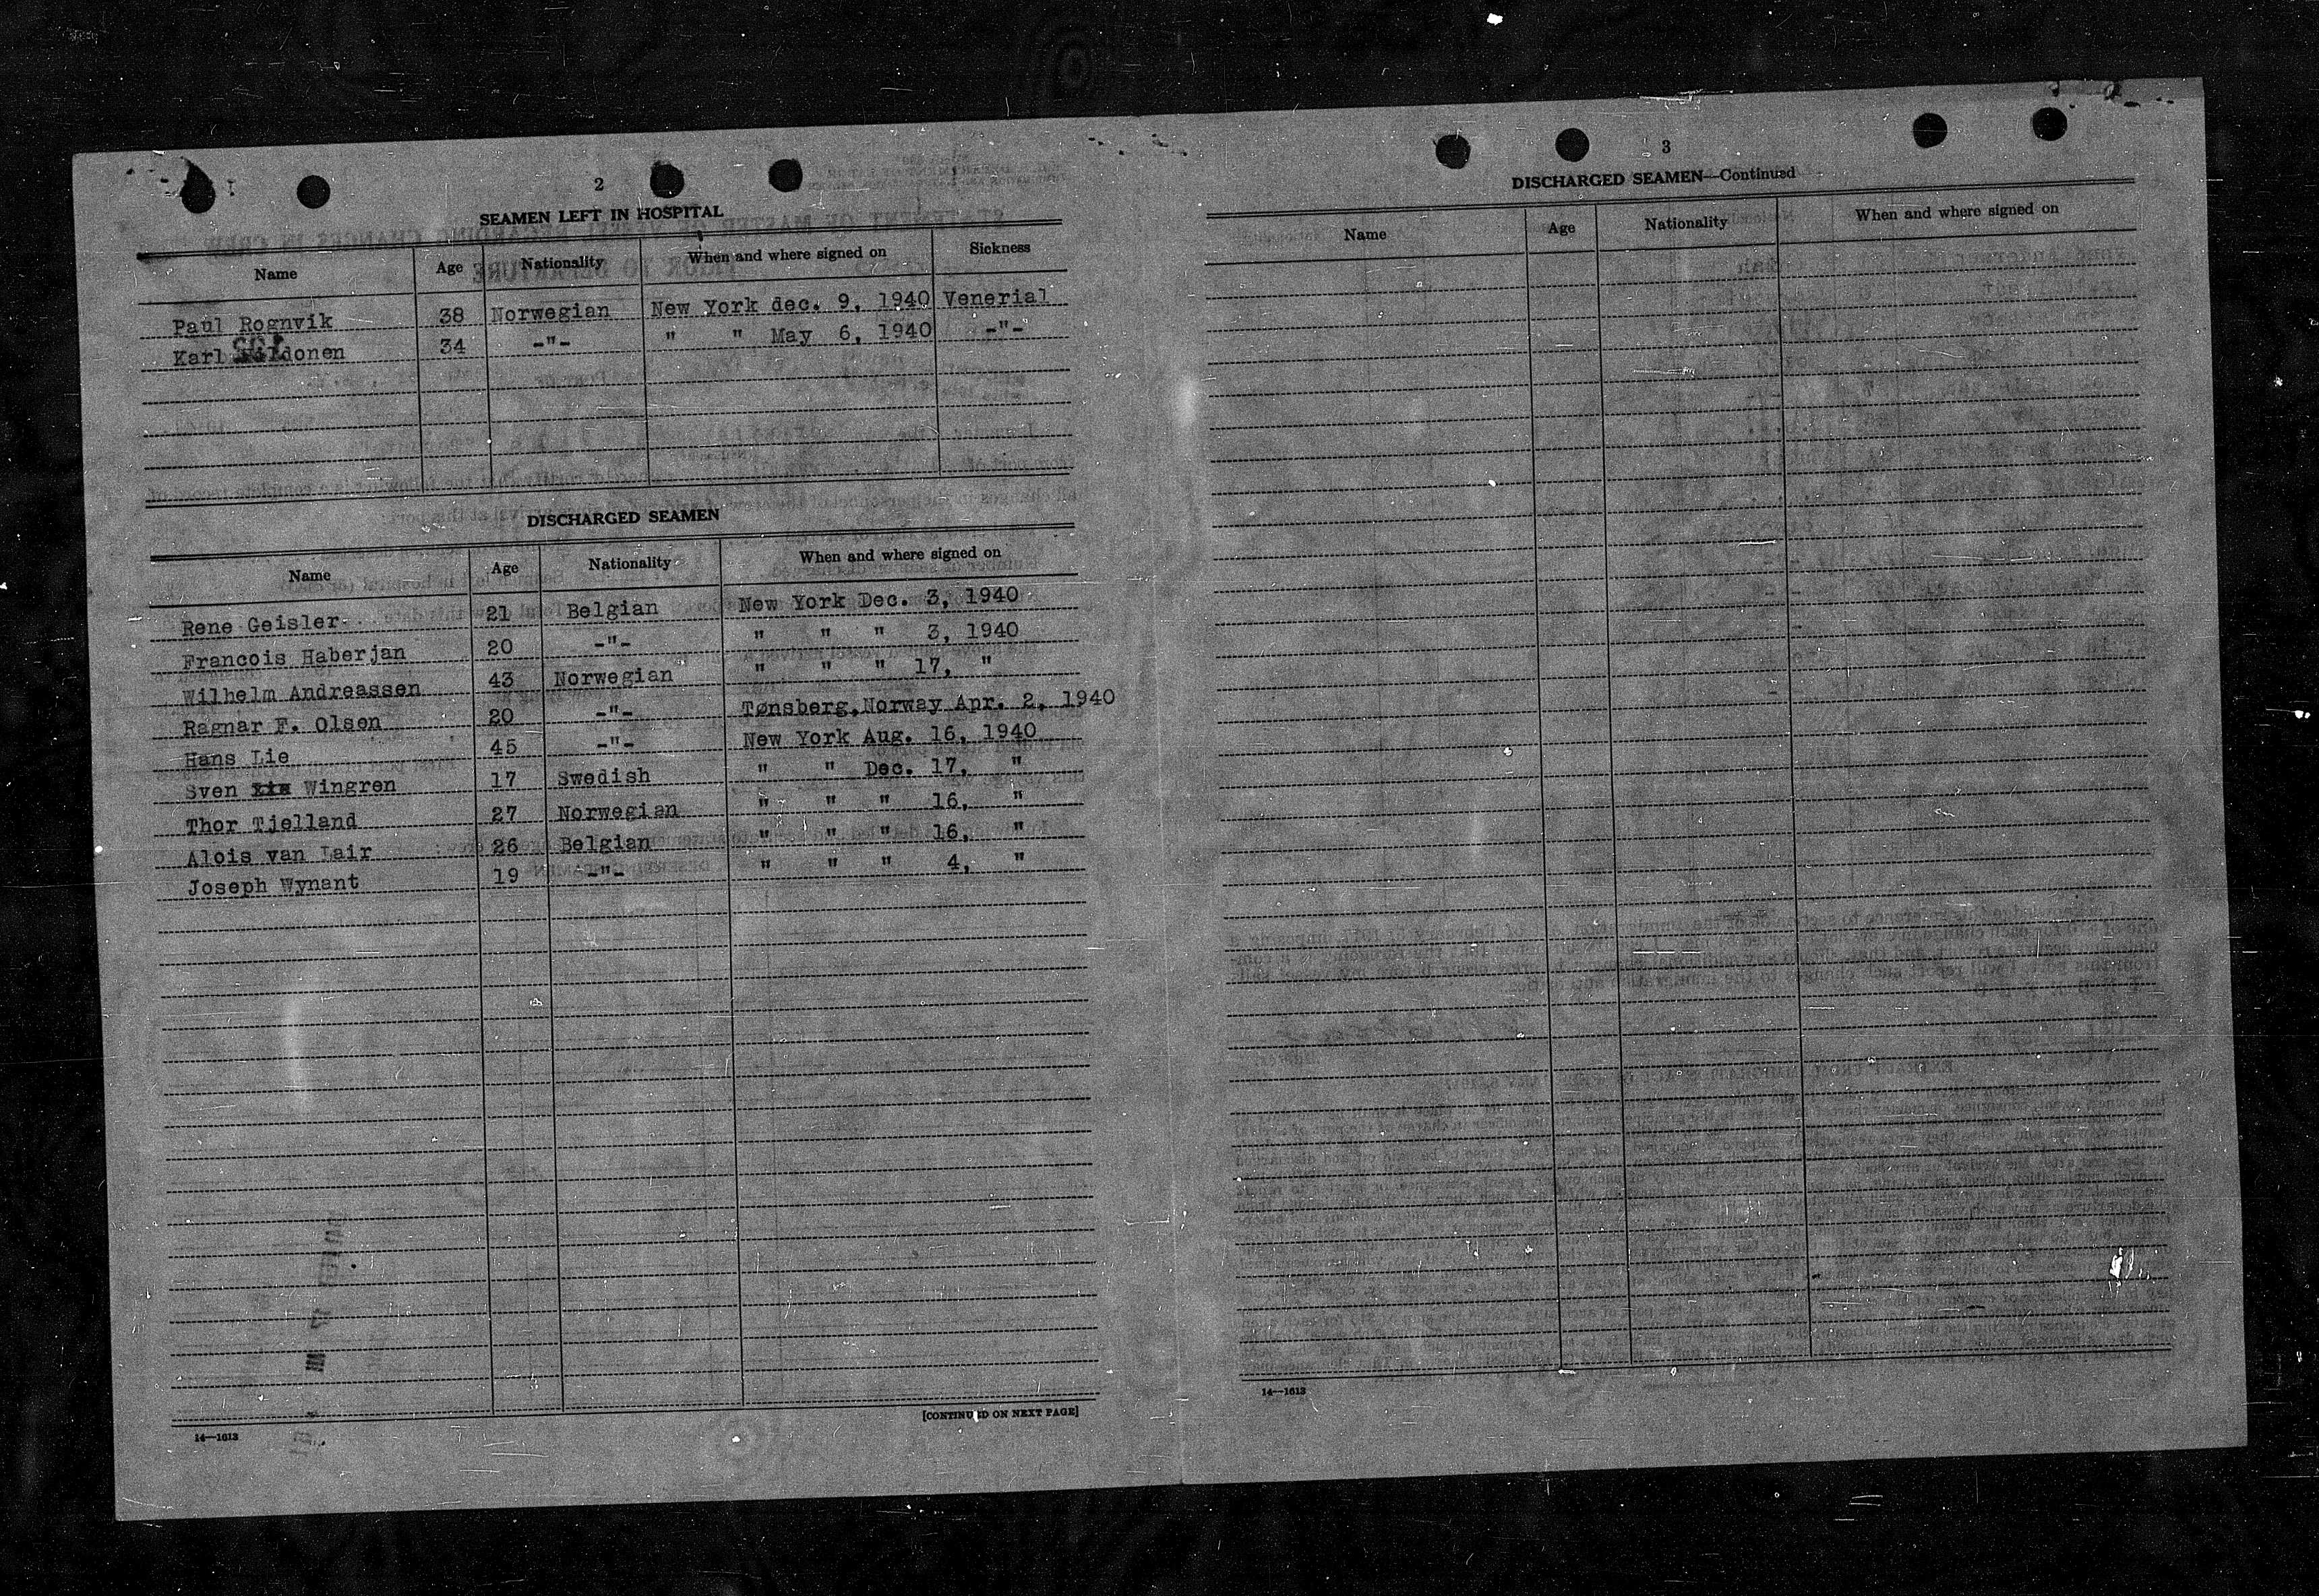 2
SEAMEN LEFT IN HOSPITAL
Name Age Nationality When and where signed on Sickness
Paul Rognvik 38 Norwegian New York dec. 9, 1940 Venerial
Karl donen 34 -"- " " May 6, 1940 -"-
DISCHARGED SEAMEN
Name Age Nationality When and where signed on
Rene Geisler 21 Belgian New York Dec. 3, 1940
Francois Haberjan 20 -"- " " " 3, 1940
Wilhelm Andreassen 43 Norwegian " " " 17, "
Ragnar F. Olsen 20 -"- Tønsberg, Norway Apr. 2, 1940
Hans Lie 45 -"- New York Aug. 16, 1940
Sven Wingren 17 Swedish " " Dec. 17, "
Thor Tjelland 27 Norwegian " " " 16, "
Alois van Lair 26 Belgian " " " 16, "
Joseph Wynant 19 -"- " " " 4, "
[CONTINUED ON NEXT PAGE]
14—1613
3
DISCHARGED SEAMEN—Continued
Name Age Nationality When and where signed on
14—1613